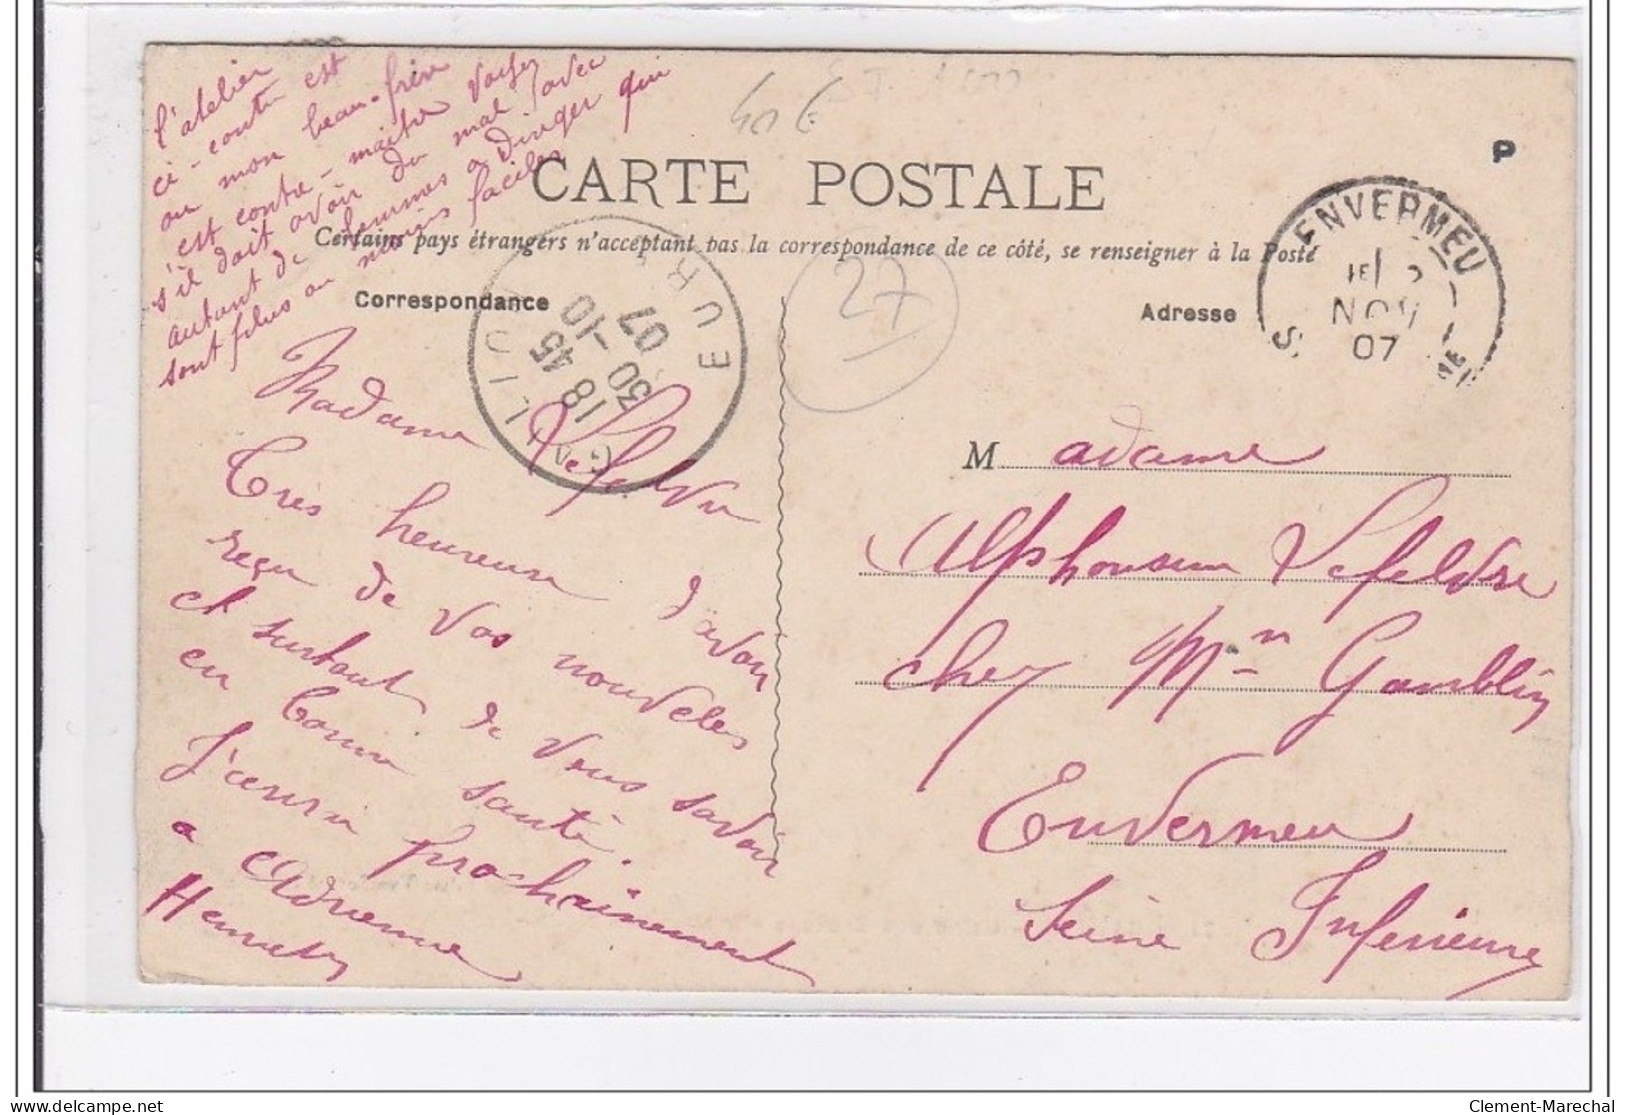 l'atelier
ci-contre est
ou mon beau-frère
est contre-maitre voyez
s'il doit avoir du mal avec
autant de femmes a diriger qui
sont plus ou moins faciles
406
P
CARTE POSTALE
Certains pays étrangers n'acceptant pas la correspondance de ce côté, se renseigner à la Poste
Correspondance
Adresse
GAILLON
EURE
18 45
30 -10
07
27
ENVERMEU
NOV
07
Madame Lefebvre
Très heureuse d'avoir
reçu de vos nouvelles
et surtout de vous savoir
en bonne santé.
J'ecrirai prochainement
a Adrienne
Henriette
M adame
Alphonsine Lefebvre
chez Mon Gamblin
Envermeu
Seine Inférieure
Clement-Marechal